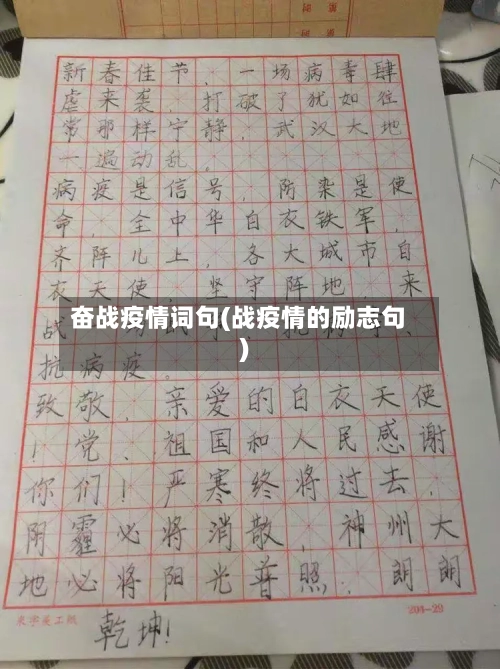 新春佳节，一场病毒肆
虐来袭，打破了犹如往
常那样宁静，武汉大地
一遍动乱，
病疫是信号，防染是使
命，全中华白衣铁军，
齐阵儿上，各大城市白
衣天使，坚守阵地、来
战
奋战疫情词句(战疫情的励志句
)
抗病疫。
致敬，亲爱的白衣天使
！党、祖国和人民感谢
你们！严寒终将过去，
阴霾必将消散，神州大
地必将阳光普照，朗朗
乾坤！
204-29